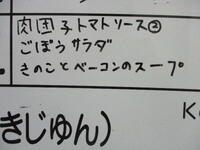 肉団子トマトソース②
ごぼうサラダ
きのことベーコンのスープ
K
きじゅん)